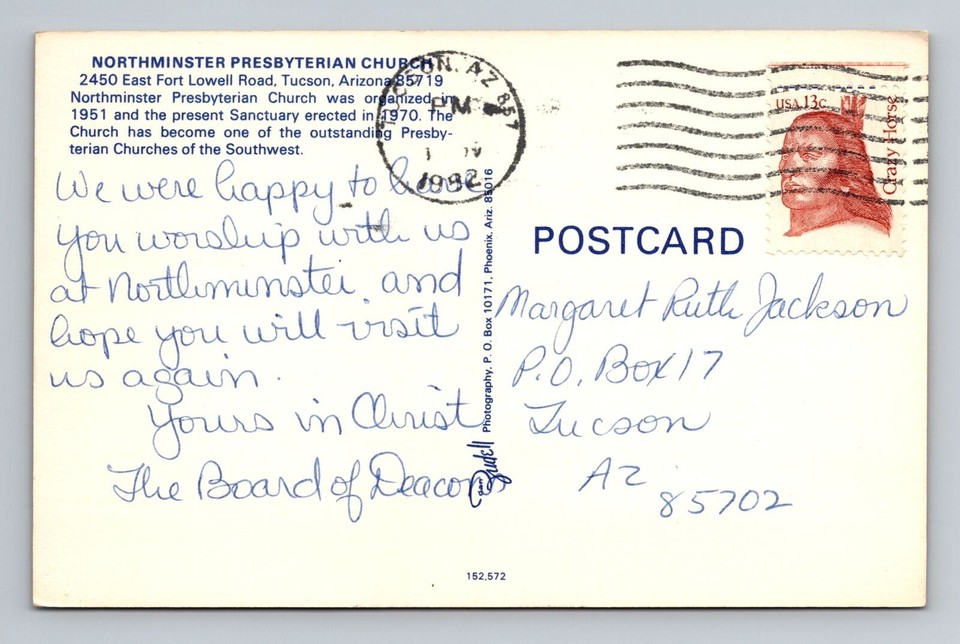 NORTHMINSTER PRESBYTERIAN CHURCH
2450 East Fort Lowell Road, Tucson, Arizona 85719
Northminster Presbyterian Church was organized in
1951 and the present Sanctuary erected in 1970. The
Church has become one of the outstanding Presby-
terian Churches of the Southwest.
We were happy to have
you worship with us
at Northminster and
hope you will visit
us again.
Yours in Christ
The Board of Deacons
TUCSON, AZ 857
PM
1982
USA 13c
Crazy Horse
POSTCARD
Margaret Ruth Jackson
P.O. Box 17
Tucson
AZ
85702
Photography, P. O. Box 10171, Phoenix, Ariz. 85016
152,572